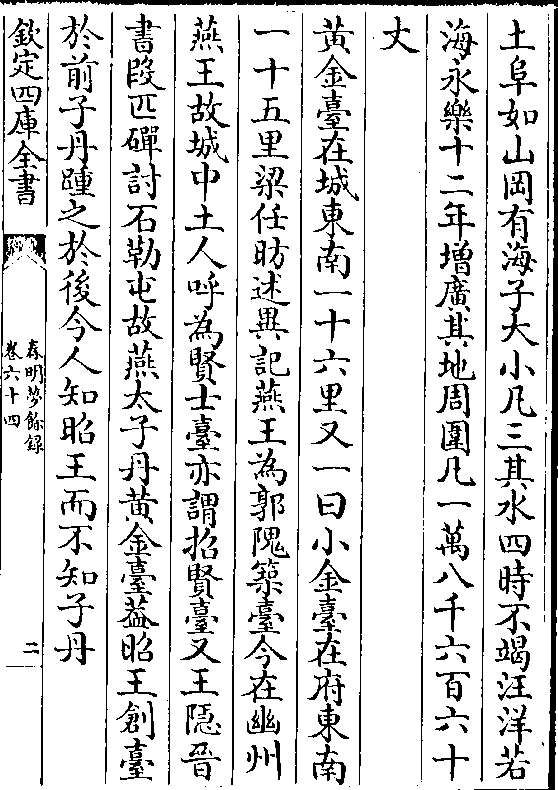 土阜如山岡有海子大小凡三其水四時不竭汪洋若
海永樂十二年增廣其地周圍凡一萬八千六百六十
丈
黃金臺在城東南一十六里又一曰小金臺在府東南
一十五里梁任昉述異記燕王為郭隗築臺今在幽州
燕王故城中土人呼為賢士臺亦謂招賢臺又王隠晉
書段匹磾討石勒屯故燕太子丹黄金臺葢昭王創臺
於前子丹踵之於後今人知昭王而不知子丹
欽定四庫全書
春明夢餘録
卷六十四
二